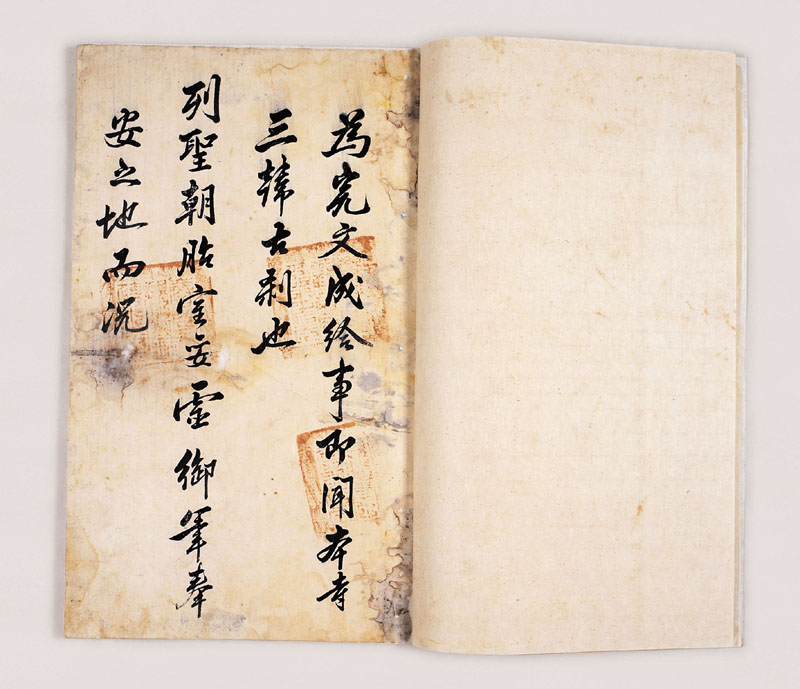 為完文成給事即聞本寺
三韓古刹也
列聖朝胎室安靈御筆奉
安之地而况